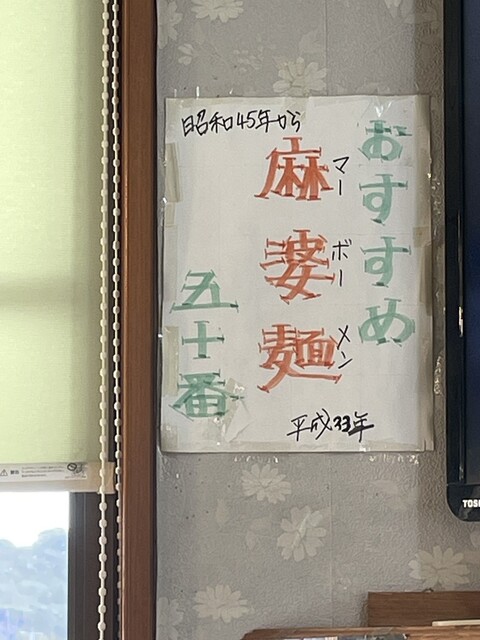 昭和45年から
おすすめ
麻婆麺
マーボーメン
五十番
平成33年
TOSH